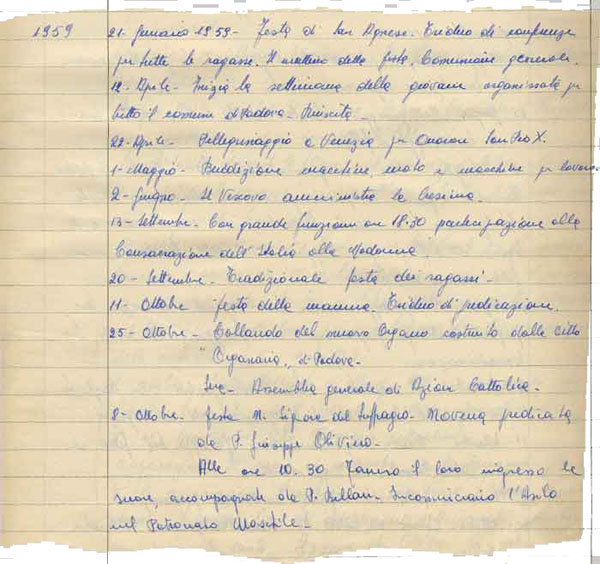 1959 21- Gennaio 1959- Festa di San Agnese. Triduo di conferenze
per tutte le ragazze. Il mattino della festa, Comunione generale.
12- Aprile- Inizia la settimana della giovane organizzata per
tutto il comune di Padova- Riuscita-
22- Aprile- Pellegrinaggio a Venezia per Onorare San Pio X.
1- Maggio- Benedizione macchine, moto e macchine per lavoro
2- Giugno- Il Vescovo amministra la Cresima.
13- Settembre. Con grande funzione ore 18.30 partecipazione alla
Consacrazione dell'Italia alla Madonna.
20- Settembre- Tradizionale festa dei ragazzi-
11- Ottobre festa della mamma. Triduo di predicazione.
25- Ottobre- Collaudo del nuovo Organo costruito dalla Ditta
"Organaria" di Padova-
Assemblea generale di Azion Cattolica-
8- Ottobre. festa M. Signore del Suffragio- Novena predicata
da P. Giuseppe Olivino-
Alle ore 10.30 fanno il loro ingresso le
suore, accompagnate da P. Incominciano l'Asilo
nel Patronato Maschile-